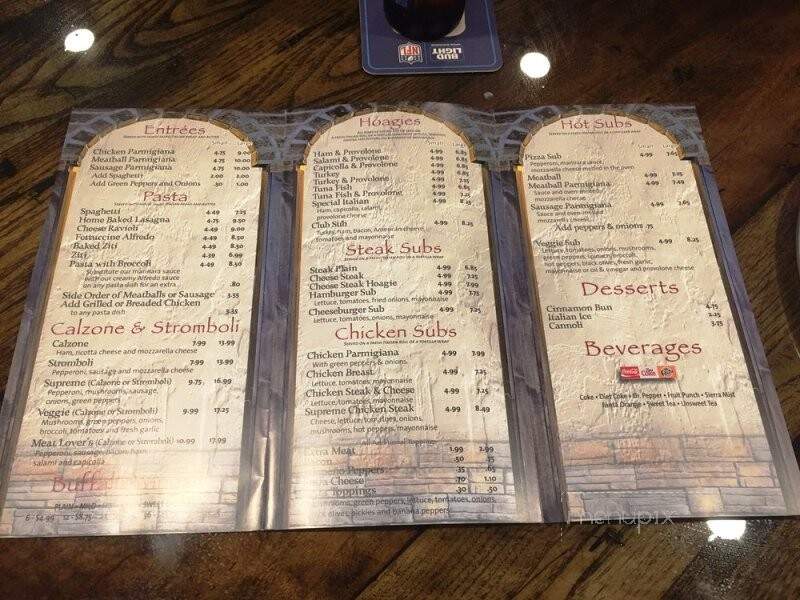 NFL
BUD LIGHT
Entrées
Small Large
Chicken Parmigiana 4.75 9.00
Meatball Parmigiana 4.75 10.00
Sausage Parmigiana 4.75 10.00
Add Spaghetti 2.00 2.00
Add Green Peppers and Onions .50 1.00
Pasta
Spaghetti 4.49 7.25
Home Baked Lasagna 4.75 9.50
Cheese Ravioli 4.49 9.00
Fottuccine Alfredo 4.49 8.50
Baked Ziti 4.49 8.50
Ziti 4.39 6.99
Pasta with Broccoli 4.49 8.50
Substitute our marinara sauce
with our creamy Alfredo sauce
on any pasta dish for an extra .80
Side Order of Meatballs or Sausage 3.35
Add Grilled or Breaded Chicken
to any pasta dish 3.35
Calzone & Stromboli
Calzone 7.99 13.99
Ham, ricotta cheese and mozzarella cheese
Stromboli 7.99 13.99
Pepperoni, sausage and mozzarella cheese
Supreme (Calzone or Stromboli) 9.75 16.99
Pepperoni, mushrooms, sausage,
onions, green peppers
Veggie (Calzone or Stromboli) 9.99 17.25
Mushrooms, green peppers, onions,
broccoli, tomatoes and fresh garlic
Meat Lover's (Calzone or Stromboli) 10.99 17.99
Pepperoni, sausage, bacon, ham,
salami and capicolla
Buffalo
PLAIN • MILD
6 - $4.99 12 - $8.75
Hoagies
Small Large
Ham & Provolone 4.99 6.85
Salami & Provolone 4.99 6.85
Capicolla & Provolone 4.99 6.85
Turkey 4.99
Turkey & Provolone 4.99 7.25
Tuna Fish 4.99 6.85
Tuna Fish & Provolone 4.99 7.25
Special Italian 4.99 8.25
Ham, capicolla, salami,
provolone cheese
Club Sub 4.99 8.25
Turkey, ham, bacon, American cheese,
tomatoes and mayonnaise
Steak Subs
SERVED ON A FRESH ITALIAN ROLL OR A TORTILLA WRAP
Steak Plain 4.99 6.85
Cheese Steak 4.99 7.25
Cheese Steak Hoagie 4.99 7.99
Hamburger Sub 4.99 7.75
Lettuce, tomatoes, fried onions, mayonnaise
Cheeseburger Sub 4.99 7.25
Lettuce, tomatoes, onions, mayonnaise
Chicken Subs
SERVED ON A FRESH ITALIAN ROLL OR A TORTILLA WRAP
Chicken Parmigiana 4.99 7.25
With green peppers & onions
Chicken Breast 4.99 7.25
Lettuce, tomatoes, mayonnaise
Chicken Steak & Cheese 4.99 7.25
Lettuce, tomatoes, mayonnaise
Supreme Chicken Steak 4.99 8.49
Cheese, lettuce, tomatoes, onions,
mushrooms, hot peppers, mayonnaise
Toppings
Extra Meat 1.99 2.99
Bacon .50 .75
Peppers .35 .65
Cheese .70 1.10
Toppings .30 .50
Mushrooms, green peppers, lettuce, tomatoes, onions,
olives, pickles and banana peppers
Hot Subs
Small Large
Pizza Sub 4.99 7.49
Pepperoni, marinara sauce,
mozzarella cheese melted in the oven
Meatball 4.99 7.25
Meatball Parmigiana 4.99 7.49
Sauce and oven melted
mozzarella cheese
Sausage Parmigiana 4.99 7.65
Sauce and oven melted
mozzarella cheese
Add peppers & onions .75
Veggie Sub 4.99 8.25
Lettuce, tomatoes, onions, mushrooms,
green peppers, spinach, broccoli,
hot peppers, black olives, fresh garlic,
mayonnaise or oil & vinegar and provolone cheese
Desserts
Cinnamon Bun 4.75
Italian Ice 2.25
Cannoli 3.75
Beverages
Coke • Diet Coke • Dr. Pepper • Fruit Punch • Sierra Mist
Fanta Orange • Sweet Tea • Unsweet Tea
menupix